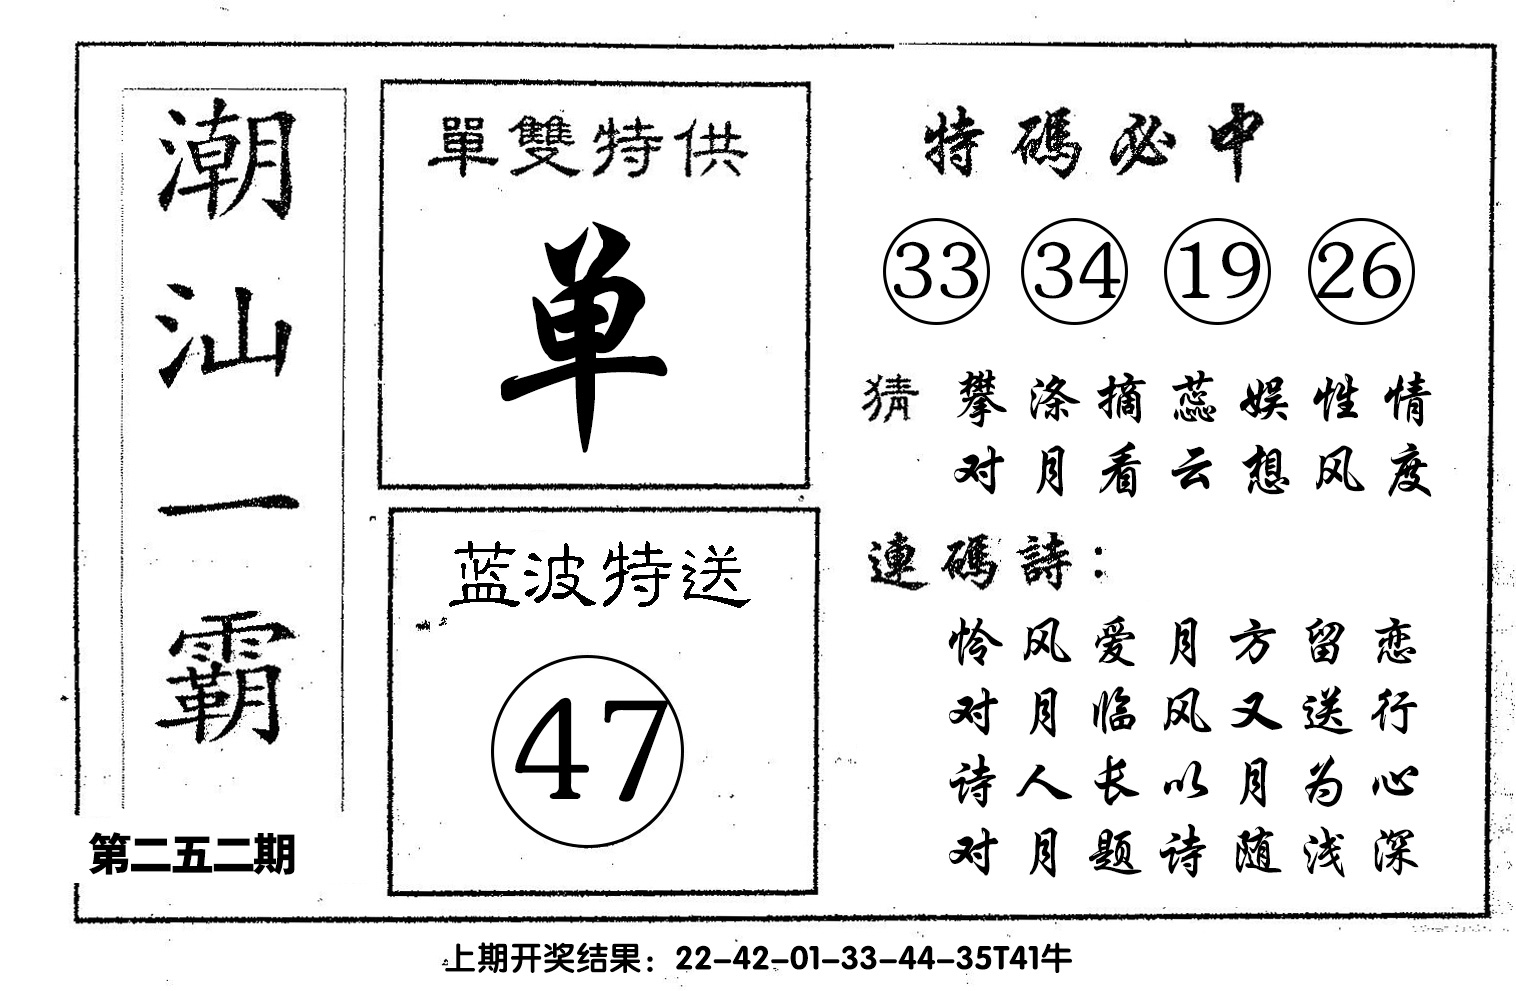 潮汕一霸
第二五二期
單雙特供
单
蓝波特送
47
特碼必中
33 34 19 26
猜 攀涤摘蕊娱性情
对月看云想风度
連碼詩：
怜风爱月方留恋
对月临风又送行
诗人长以月为心
对月题诗随浅深
上期开奖结果：22-42-01-33-44-35T41牛